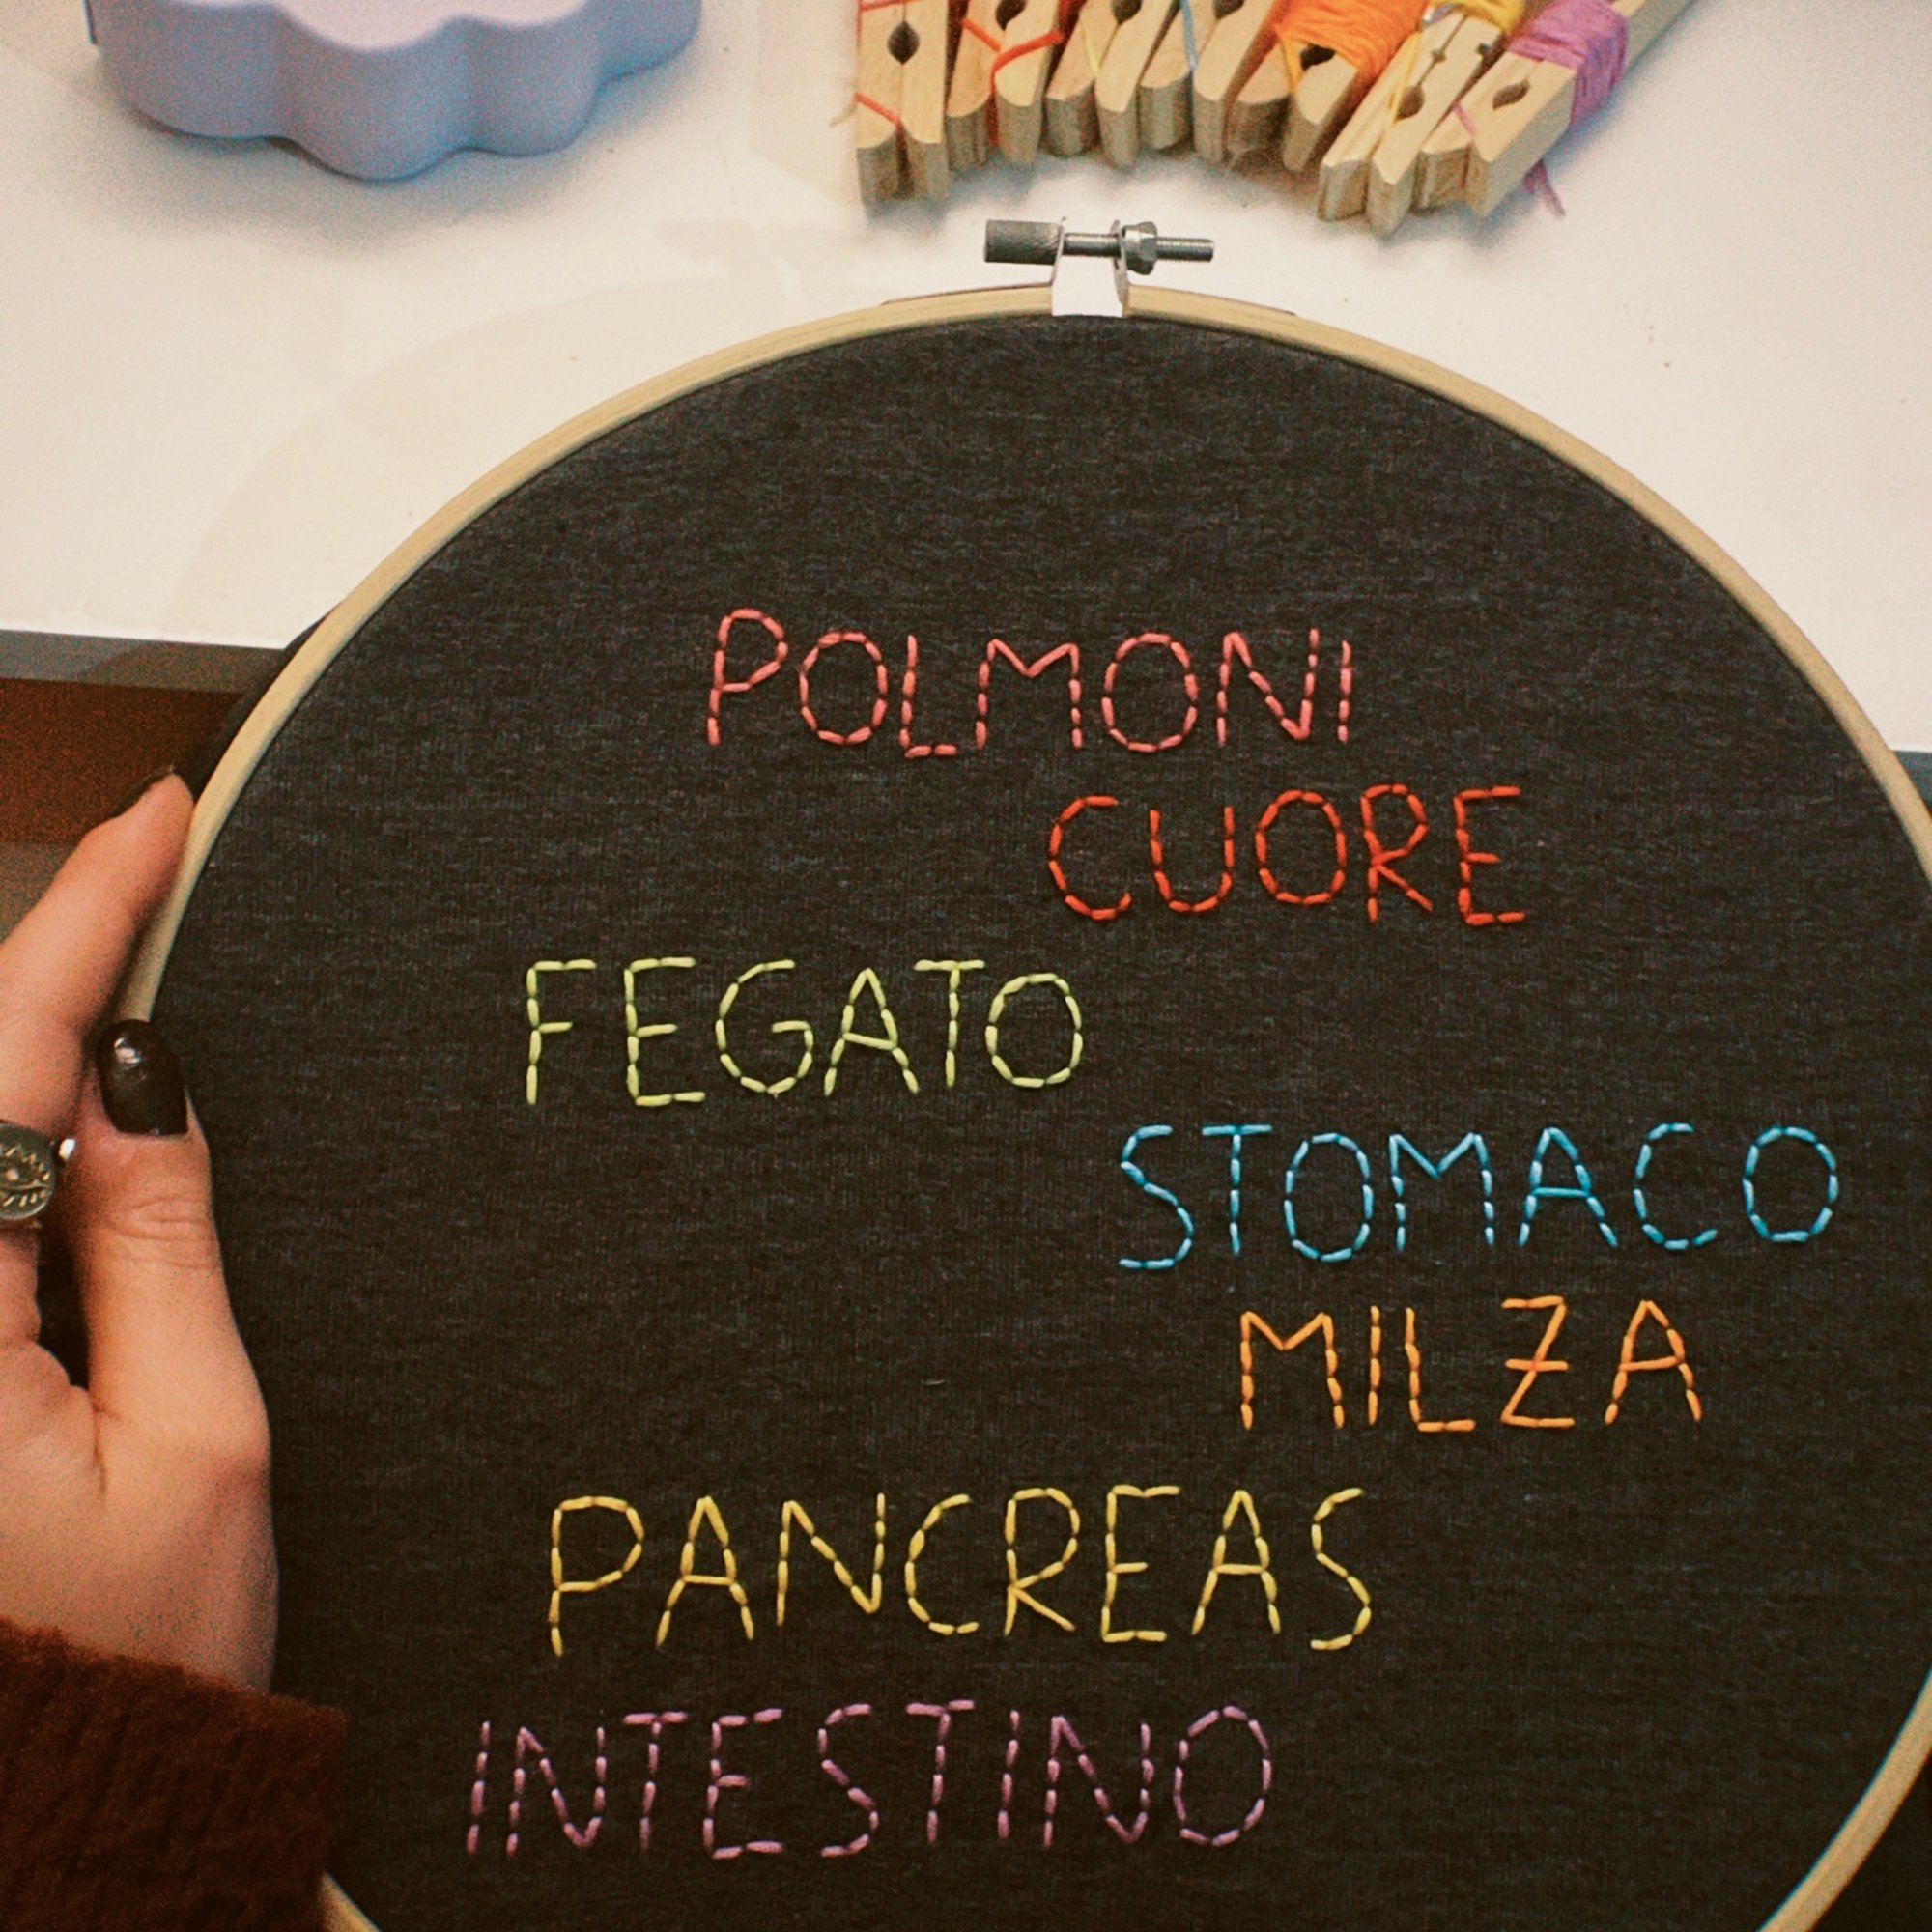 POLMONI
CUORE
FEGATO
STOMACO
MILZA
PANCREAS
INTESTINO